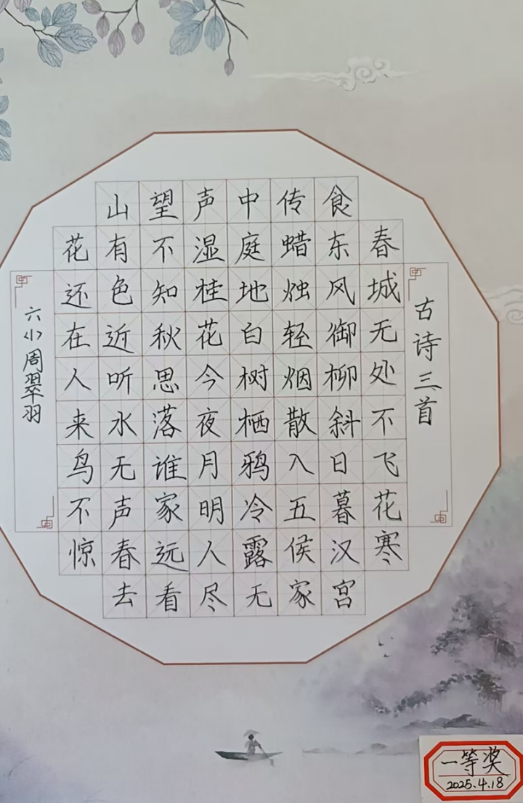 古诗三首
春城无处不飞花寒
食东风御柳斜日暮汉宫
传蜡烛轻烟散入五侯家
中庭地白树栖鸦冷露无
声湿桂花今夜月明人尽
望不知秋思落谁家远看
山有色近听水无声春去
花还在人来鸟不惊
六小周翠羽
一等奖
2025.4.18